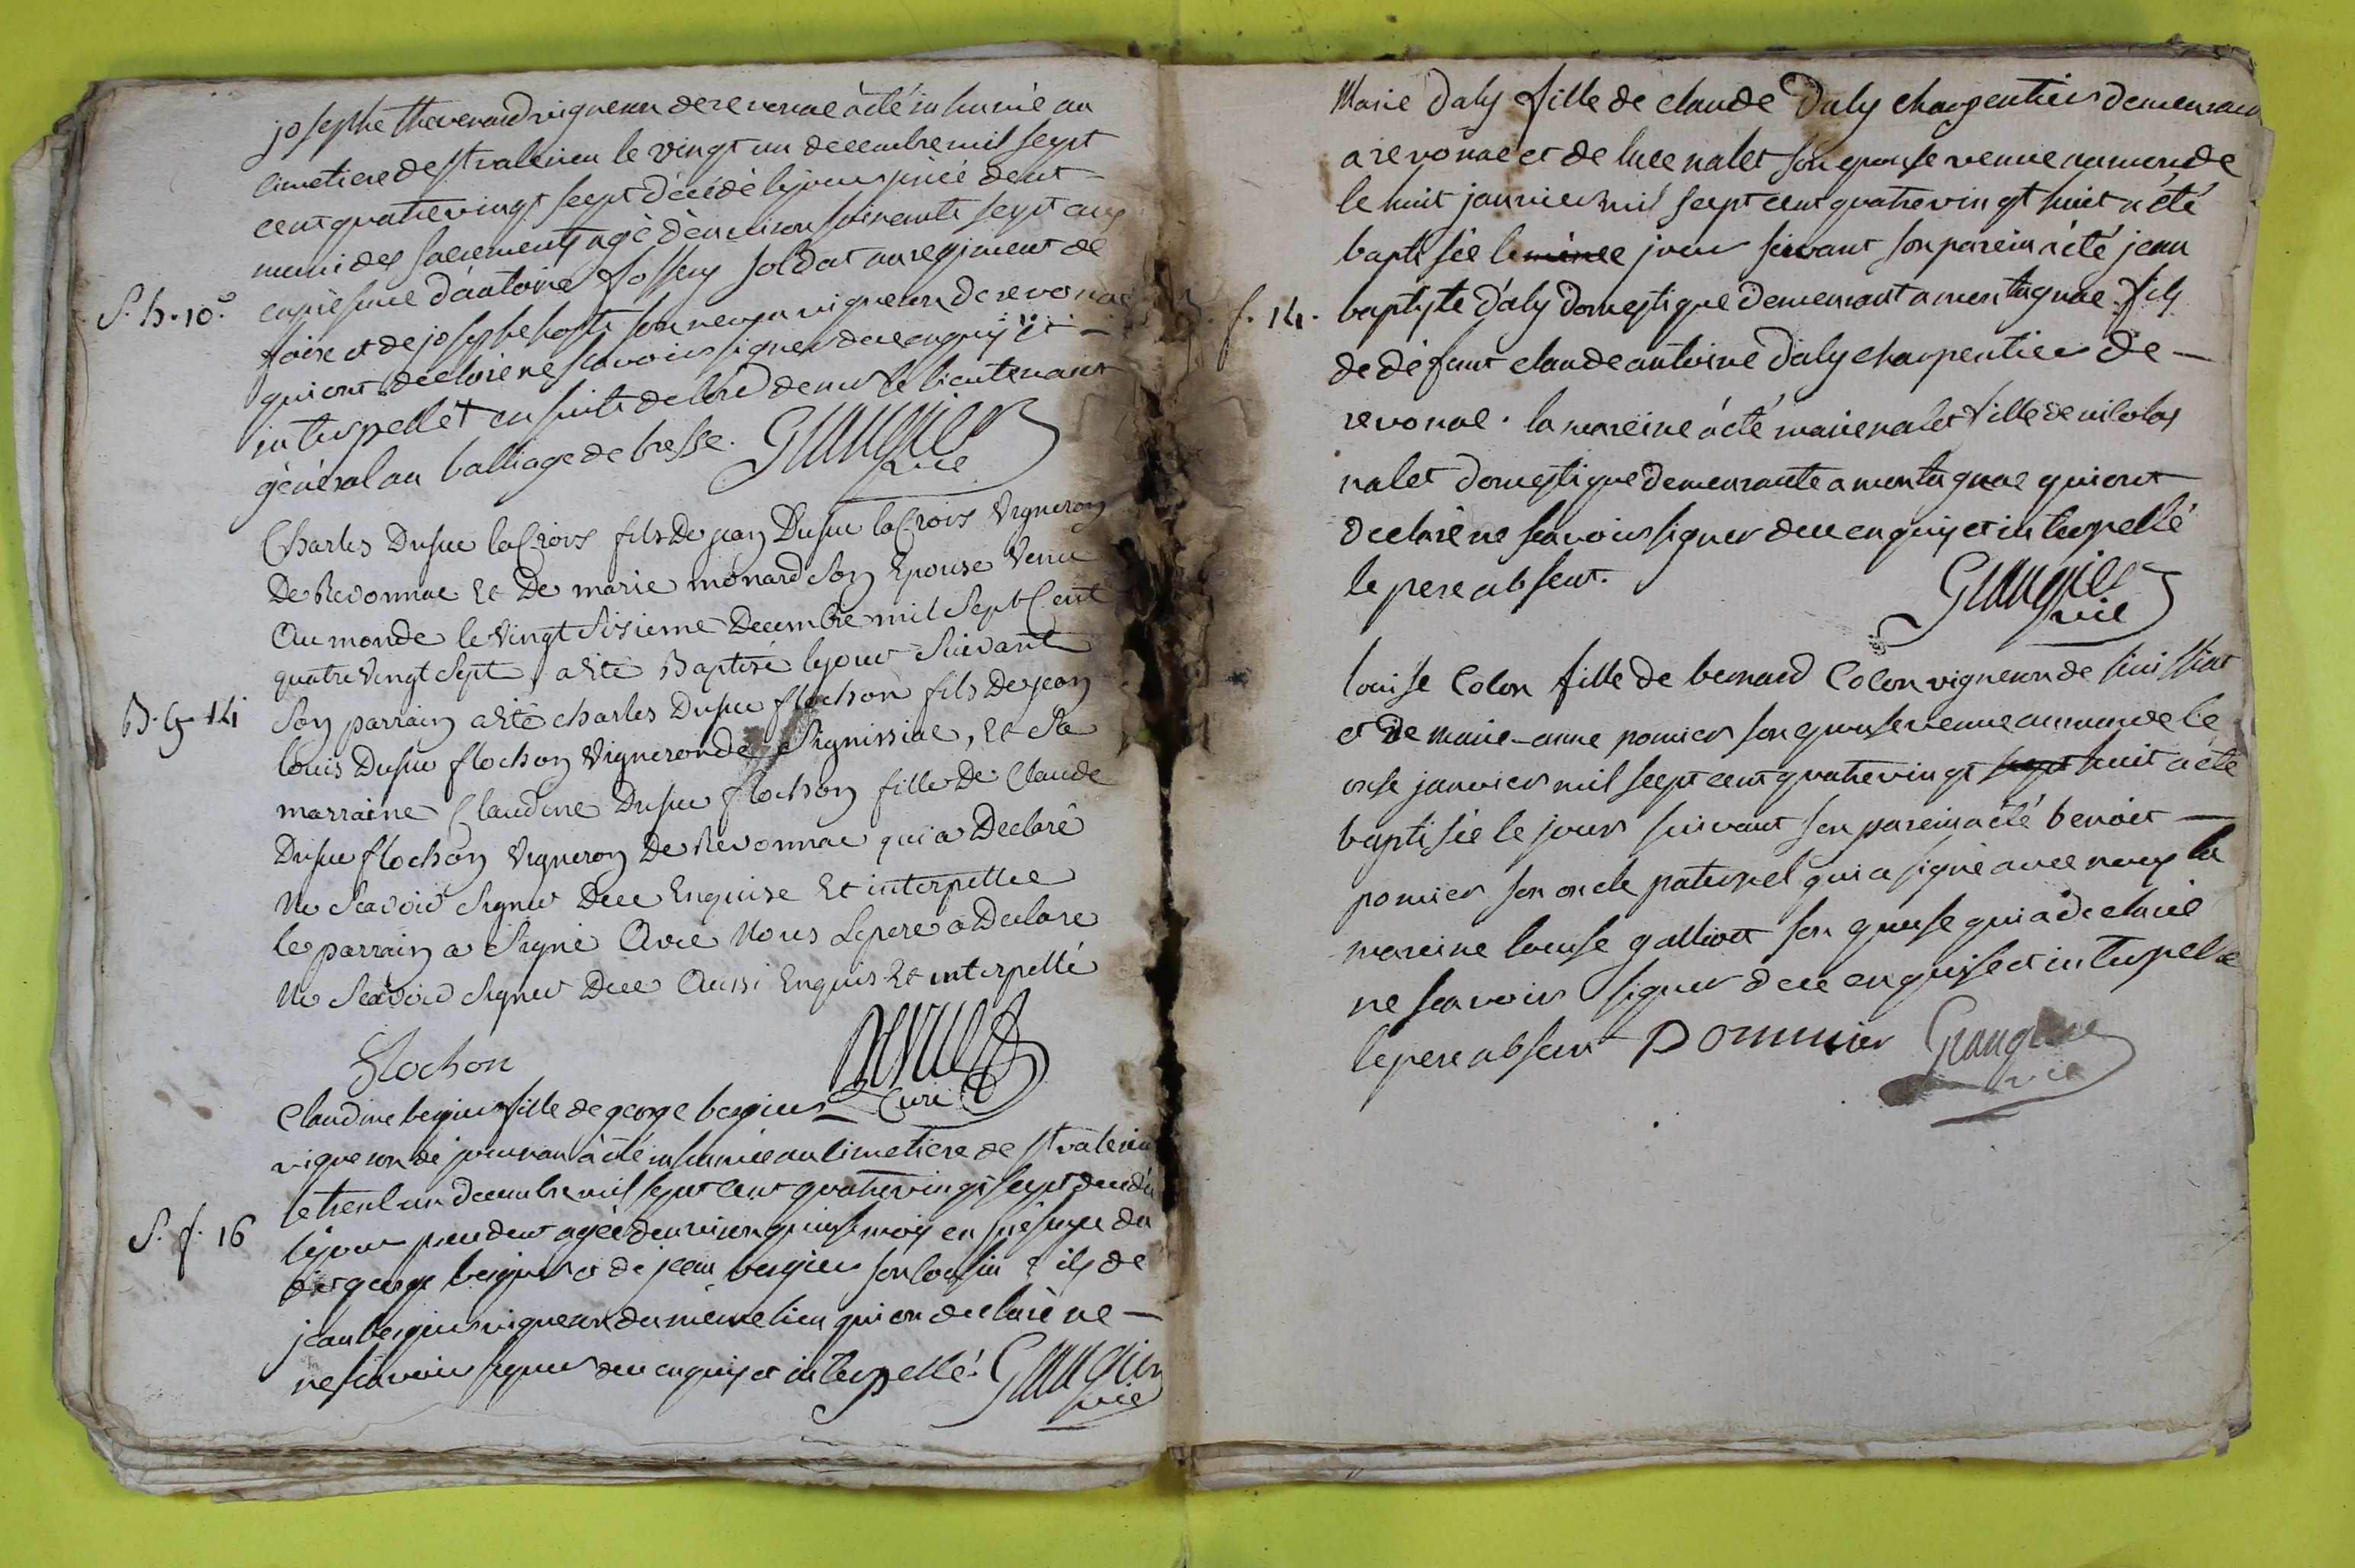 josephe thevenard vigneron de revonac a été inhumé au
cimetiere de st valerien le vingt un decembre mil sept
cent quatre vingt sept décédé le jour précédent
muni des sacrements agé d'environ soixante sept ans
S. h. 10.
en présence d'antoine fossery soldat au regiment de
foix et de josephe son neveu vigneron de revonac
qui ont declaré ne scavoir signer de ce enquis et
interpellet en suite de l'ord de mr le lieutenant
général au balliage de bresse. Grangier
vic
Charles Dusuc laCroix fils De jean Dusuc laCroix Vigneron
De Revonnac Et De marie monard Son Epouse Venu
Au monde le Vingt Sixieme Decembre mil Sept Cent
quatre Vingt Sept, a Eté Baptisé le jour Suivant
B. g. 14
Son parrain a Eté charles Dusuc flochon fils De jean
louis Dusuc flochon Vigneron de Signissiac, Et Sa
marraine Claudine Dusuc flochon fille De Claude
Dusuc flochon Vigneron De Revonnac qui a Declaré
Ne Scavoir Signer Dece Enquise Et interpellee
le parrain a Signé Avec Nous Le pere a Declaré
Ne Scavoir Signer Dece Aussi Enquis Et interpellé
flochon
Curé
Claudine bergier fille de george bergier
vigneron de journan a été inhumée au cimetiere de st valerien
le trent un decembre mil sept cent quatre vingt sept décédée
S. f. 16
le jour precedent agée d'environ quinse mois en présence du
dit george bergier et de jean bergier son cousin fils de
jean bergier vigneron du même lieu qui on declaré ne
ne scavoir signer dece enquis et interpellé. Grangier
vic
Marie Daly fille de claude Daly charpentier demeurant
a revonac et de luce nalet son epouse venue au monde
le huit janvier mil sept cent quatre vingt huit a été
baptisée le même jour suivant son parein a été jean
f. 14.
baptyste d'aly domestique demeurant a montagnac fils
de défunt claude antoine d'aly charpentier de
revonac. la mareine a été marie nalet fille de nicolas
nalet domestique demeurante a montagnac qui ont
declaré ne scavoir signer dece enquis et interpellé
le pere absent. Grangier
vic
louise Colon fille de bernard Colon vigneron de
et de marie-anne pomier son epouse venue au monde le
onse janvier mil sept cent quatre vingt sept huit a été
baptisée le jour suivant son parein a été benoit
pomier son oncle paternel qui a signé avec nous la
mareine louise galliott son epouse qui a declaré
ne scavoir signer dece enquise et interpele
le pere absent Pommier Grangier
vic